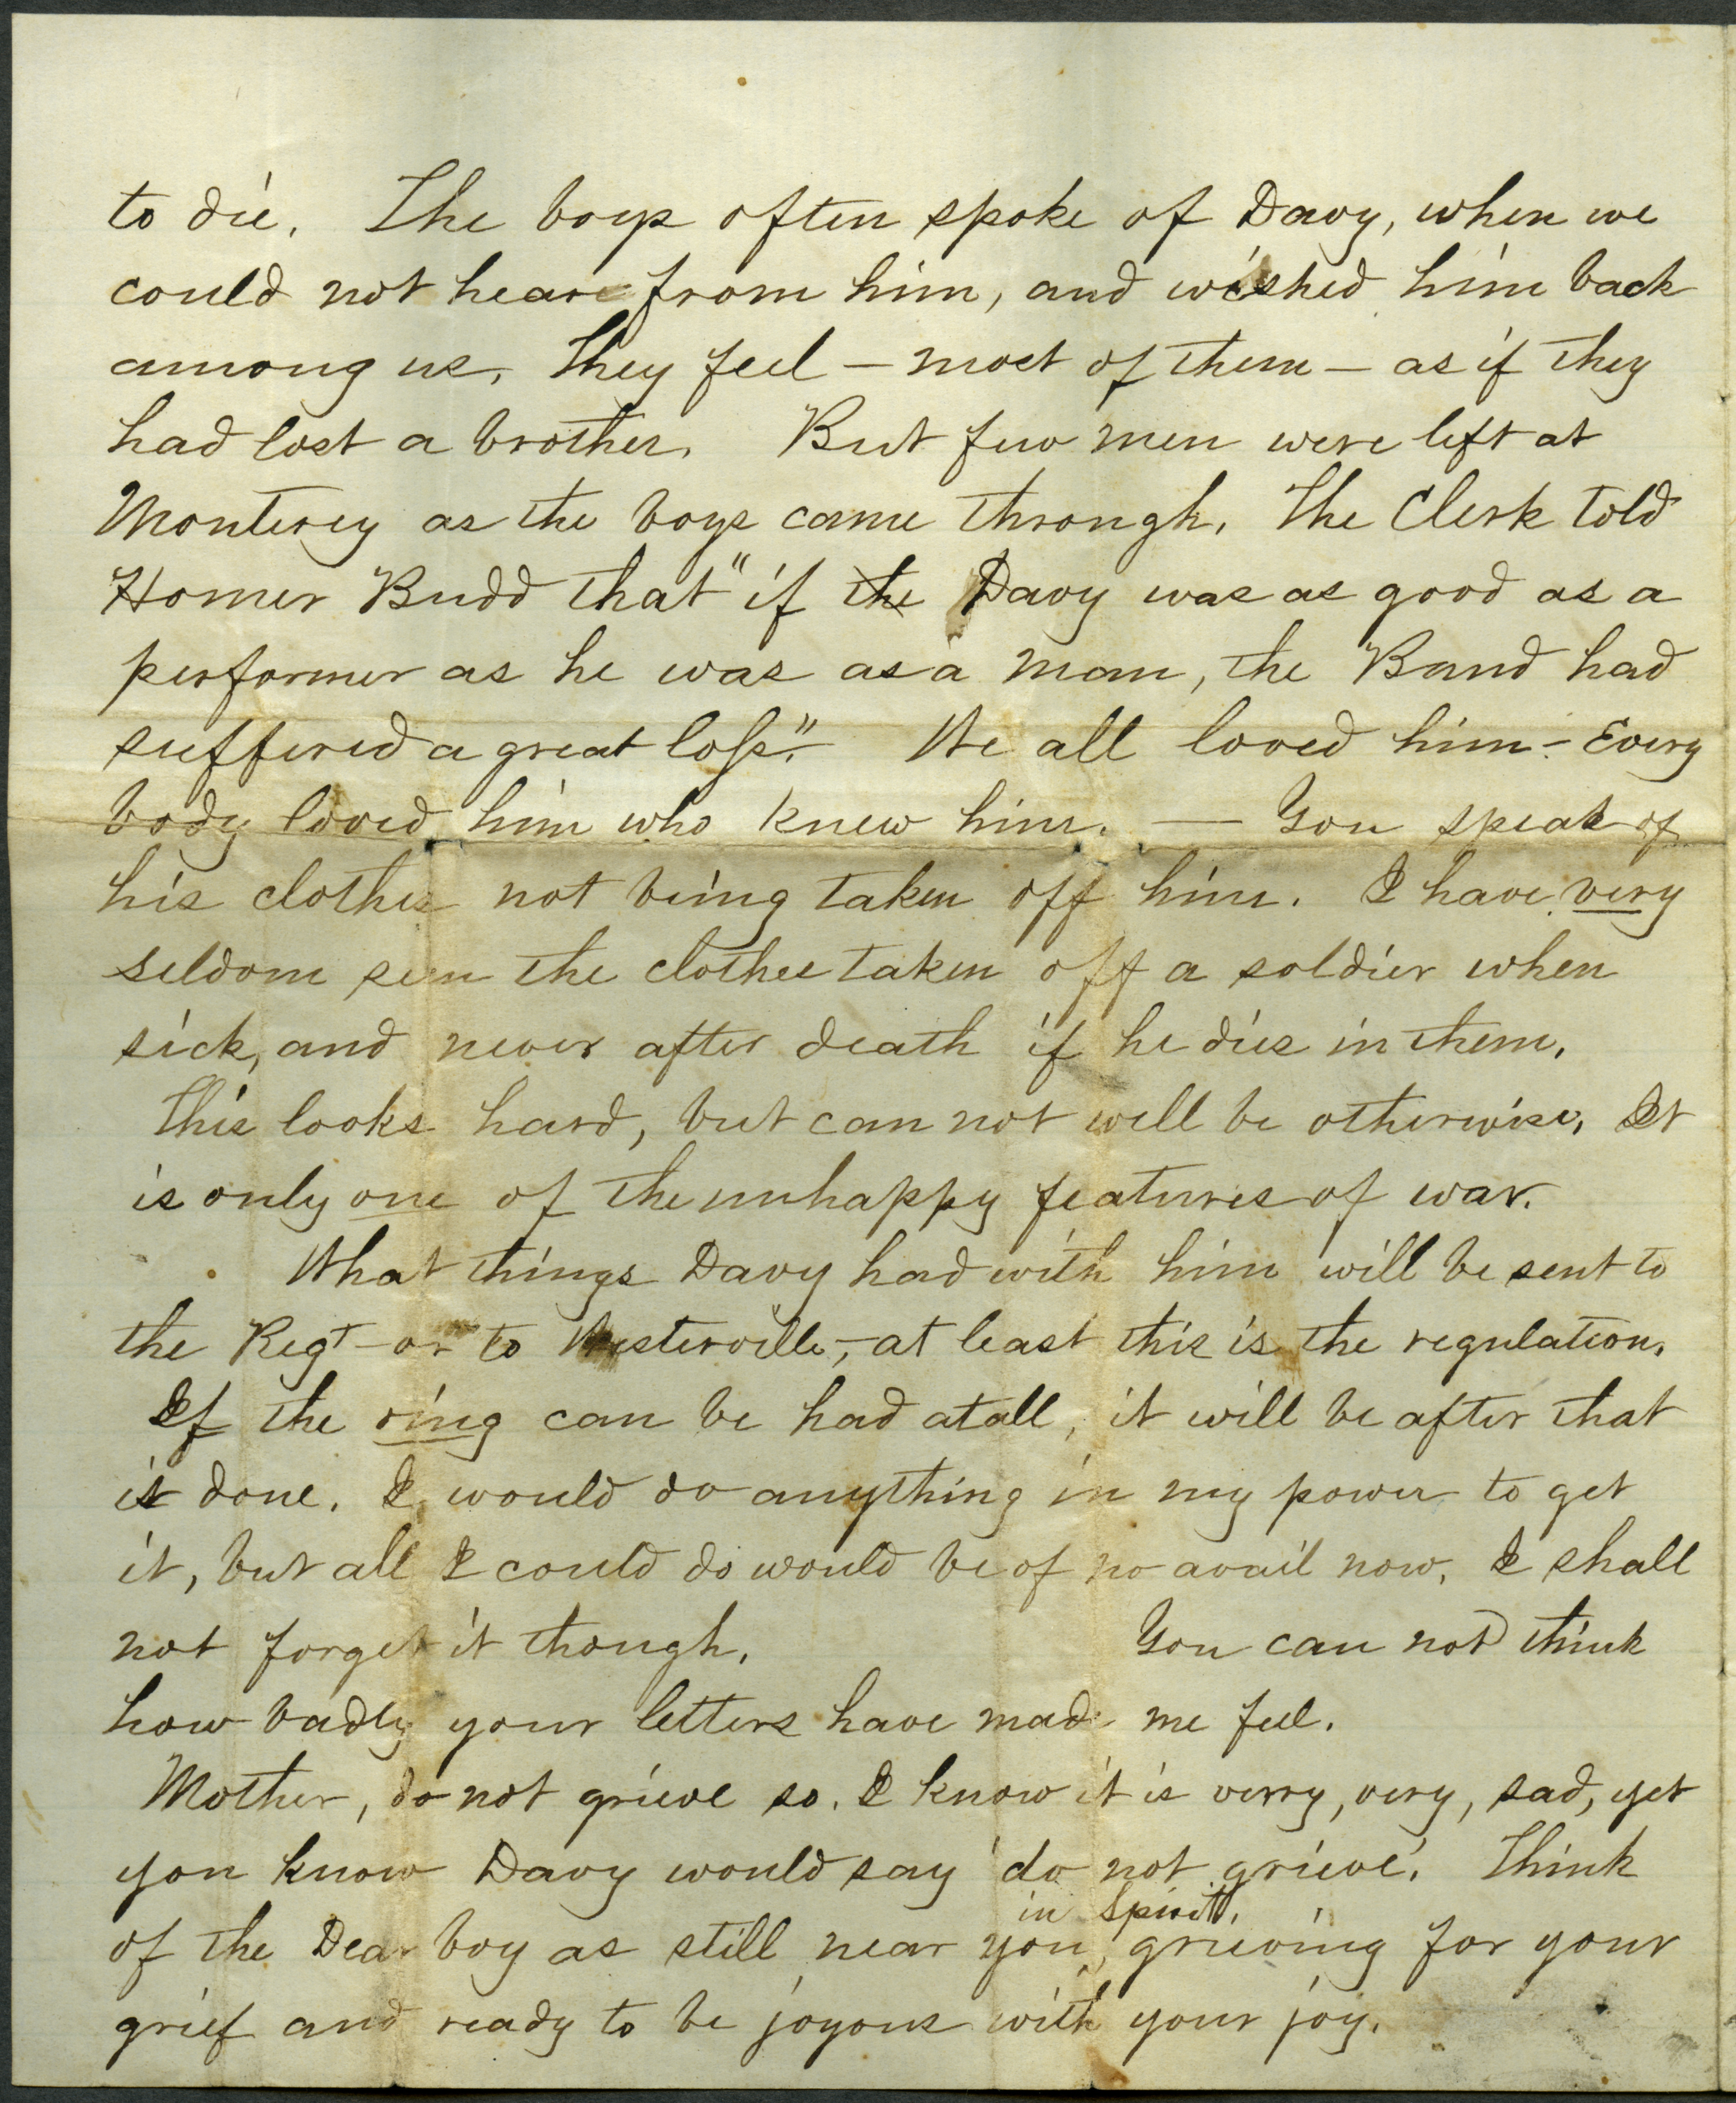 to die. The boys often spoke of Davy, when we
could not hear from him, and wished him back
among us. They feel – most of them – as if they
had lost a brother. But few men were left at
Monterey as the boys came through. The Clerk told
Homer Budd that "if the Davy was as good as a
performer as he was as a man, the Band had
suffered a great loss". We all loved him – Every
body loved him who knew him. — You speak of
his clothes not being taken off him. I have very
seldom seen the clothes taken off a soldier when
sick, and never after death if he dies in them.
This looks hard, but can not well be otherwise. It
is only one of the unhappy features of war.
What things Davy had with him will be sent to
the Regt – or to Westerville, – at least this is the regulation.
If the ring can be had at all, it will be after that
is done. I would do anything in my power to get
it, but all I could do would be of no avail now. I shall
not forget it though. You can not think
how badly your letters have made me feel.
Mother, do not grieve so. I know it is verry, very, sad, yet
you know Davy would say 'do not grieve'. Think
in spirit,
of the Dear boy as still near you, grieving for your
grief and ready to be joyous with your joy.